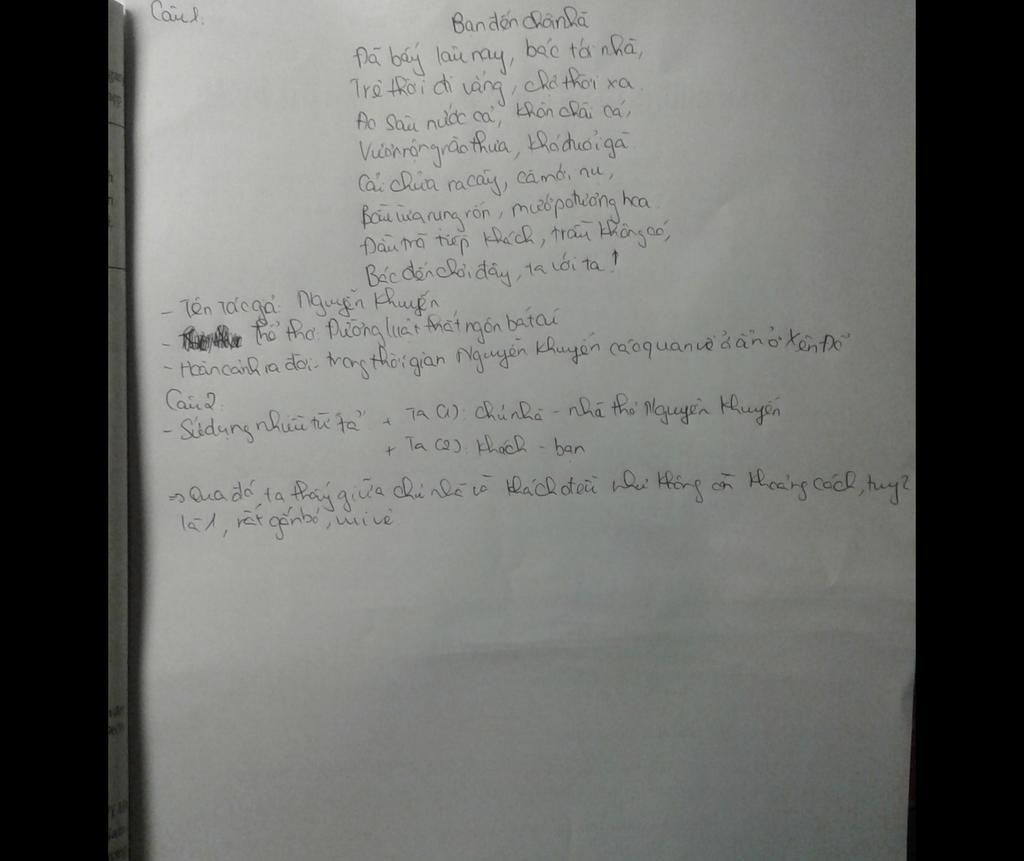 Câu 1.
Bạn đến chơi nhà
Đã bấy lâu nay, bác tới nhà,
Trẻ thời đi vắng, chợ thời xa.
Ao sâu nước cả, khôn chài cá,
Vườn rộng rào thưa, khó đuổi gà
Cải chửa ra cây, cà mới nụ,
Bầu vừa rụng rốn, mướp đương hoa.
Đầu trò tiếp khách, trầu không có,
Bác đến chơi đây, ta với ta!
- Tên tác giả: Nguyễn Khuyến
- Thể thơ: Đường luật thất ngôn bát cú
- Hoàn cảnh ra đời: trong thời gian Nguyễn Khuyến cáo quan về ở ẩn ở Yên Đổ
Câu 2:
- Sử dụng nhiều từ "ta" + Ta (1): chủ nhà - nhà thơ Nguyễn Khuyến
+ Ta (2): khách - bạn
=> Qua đó ta thấy giữa chủ nhà và khách đều như không còn khoảng cách, tuy 2
là 1, rất gắn bó, vui vẻ.